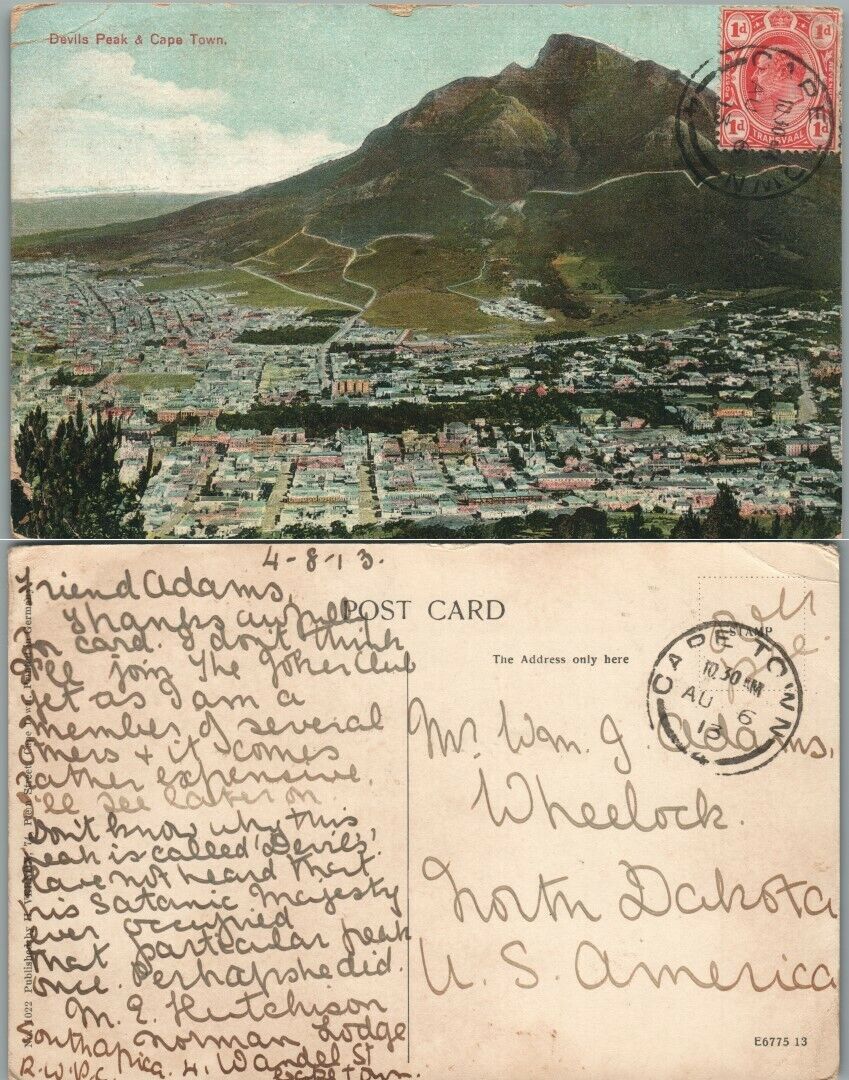 Devils Peak & Cape Town.
1d 1d
1d TRANSVAAL 1d
CAPE TOWN
10.30 AM
AU 6
13
4-8-13.
Friend Adams,
Thanks awfully
on card. I don't think
I'll join the Joker Club
yet as I am a
member of several
others + it comes
rather expensive.
I'll see later on.
Don't know why this
peak is called 'Devils',
have not heard that
his Satanic Majesty
ever occupied
that particular peak
once. Perhaps he did.
M. E. Hutchison
Norman Lodge
4. Wandel St
Cape Town.
South Africa.
POST CARD
The Address only here
STAMP
CAPE TOWN
10.30 AM
AU 6
13
4
Mr. Wm. J. Adams,
Wheelock.
North Dakota
U. S. America
E6775 13